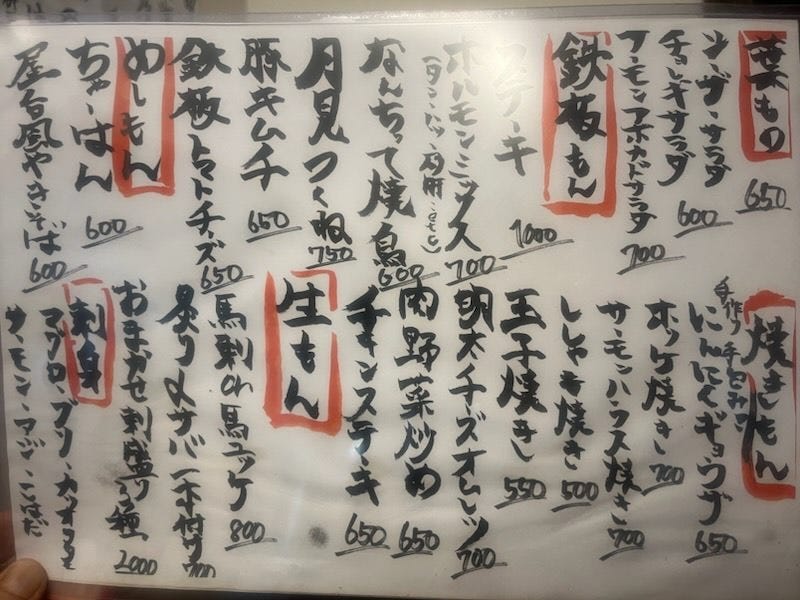 葉もの
シーザーサラダ
650
チョレギサラダ
600
サーモンアボカドサラダ
700
鉄板もん
ステーキ
1000
ホルモンミックス
700
なんちって焼鳥
600
月見つくね
750
豚キムチ
650
鉄板トマトチーズ
650
めしもん
ちゃーはん
600
屋台風やきそば
600
焼きもん
手作り手包み
にんにくギョウザ
650
ホッケ焼き
700
サーモンハラス焼き
700
ししゃも焼き
500
玉子焼き
550
明太チーズオムレツ
700
肉野菜炒め
650
チキンステーキ
650
生もん
馬刺 or 馬ユッケ
800
炙り〆サバ一本付け
700
おまかせ刺盛り3種
2000
刺身
マグロ・ブリ・カツオタタキ
サーモン・アジ・こはだ